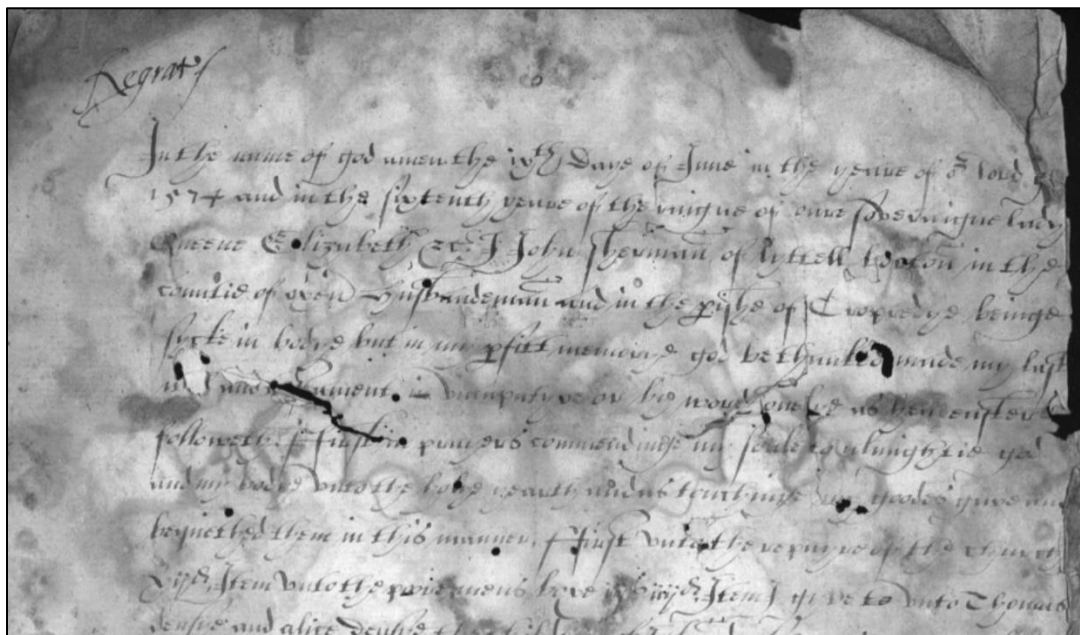 Regrat
In the name of god amen the ixth Daye of June in the yeare of or lord
1574 and in the sixtenth yeare of the raigne of oure soveraigne lady
Queene Elizabeth &c I John Sherman of lyttell boorton in the
countie of oxen husbandeman and in the pishe of Cropredye beinge
sycke in bodye but in my pfitt memorye god be thanked made my last
and in manner
followeth. First in prayers commendinge my soule to almightie god
and my bodye unto the holye yearth and as touchinge my goodes gave and
bequethed them in this manner. First unto the repayre of the church
xijd. Item unto the poremens boxe iiijd. Item I give to unto Thomas
densye and alice densye